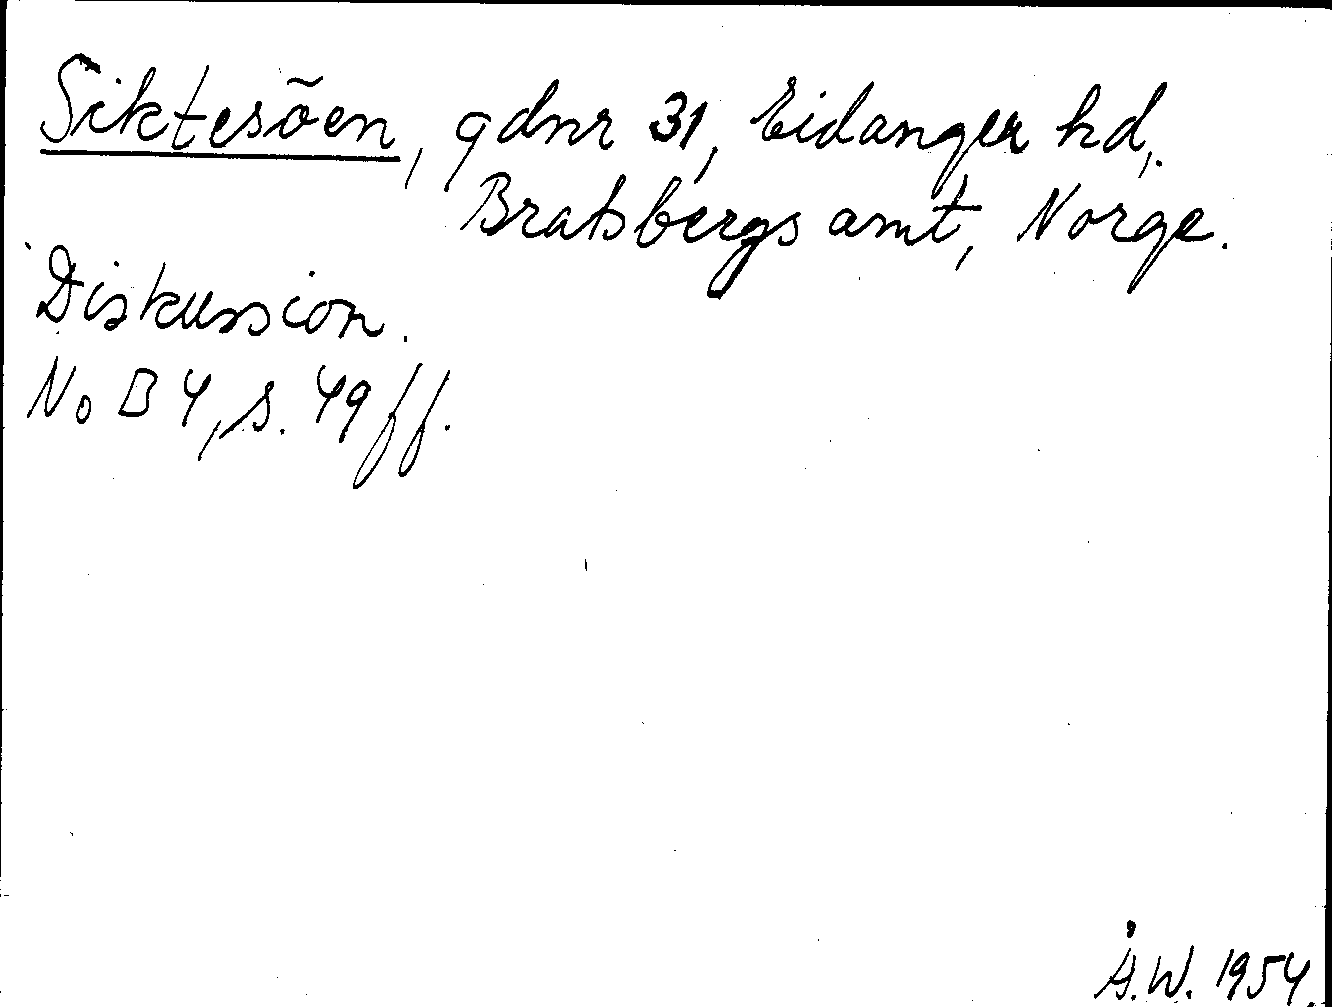 Siktesöen, gdnr 31, Eidanger hd,
Bratsbergs amt, Norge.
Diskussion.
NoB 4, s. 49 ff.
Å.W. 1954.